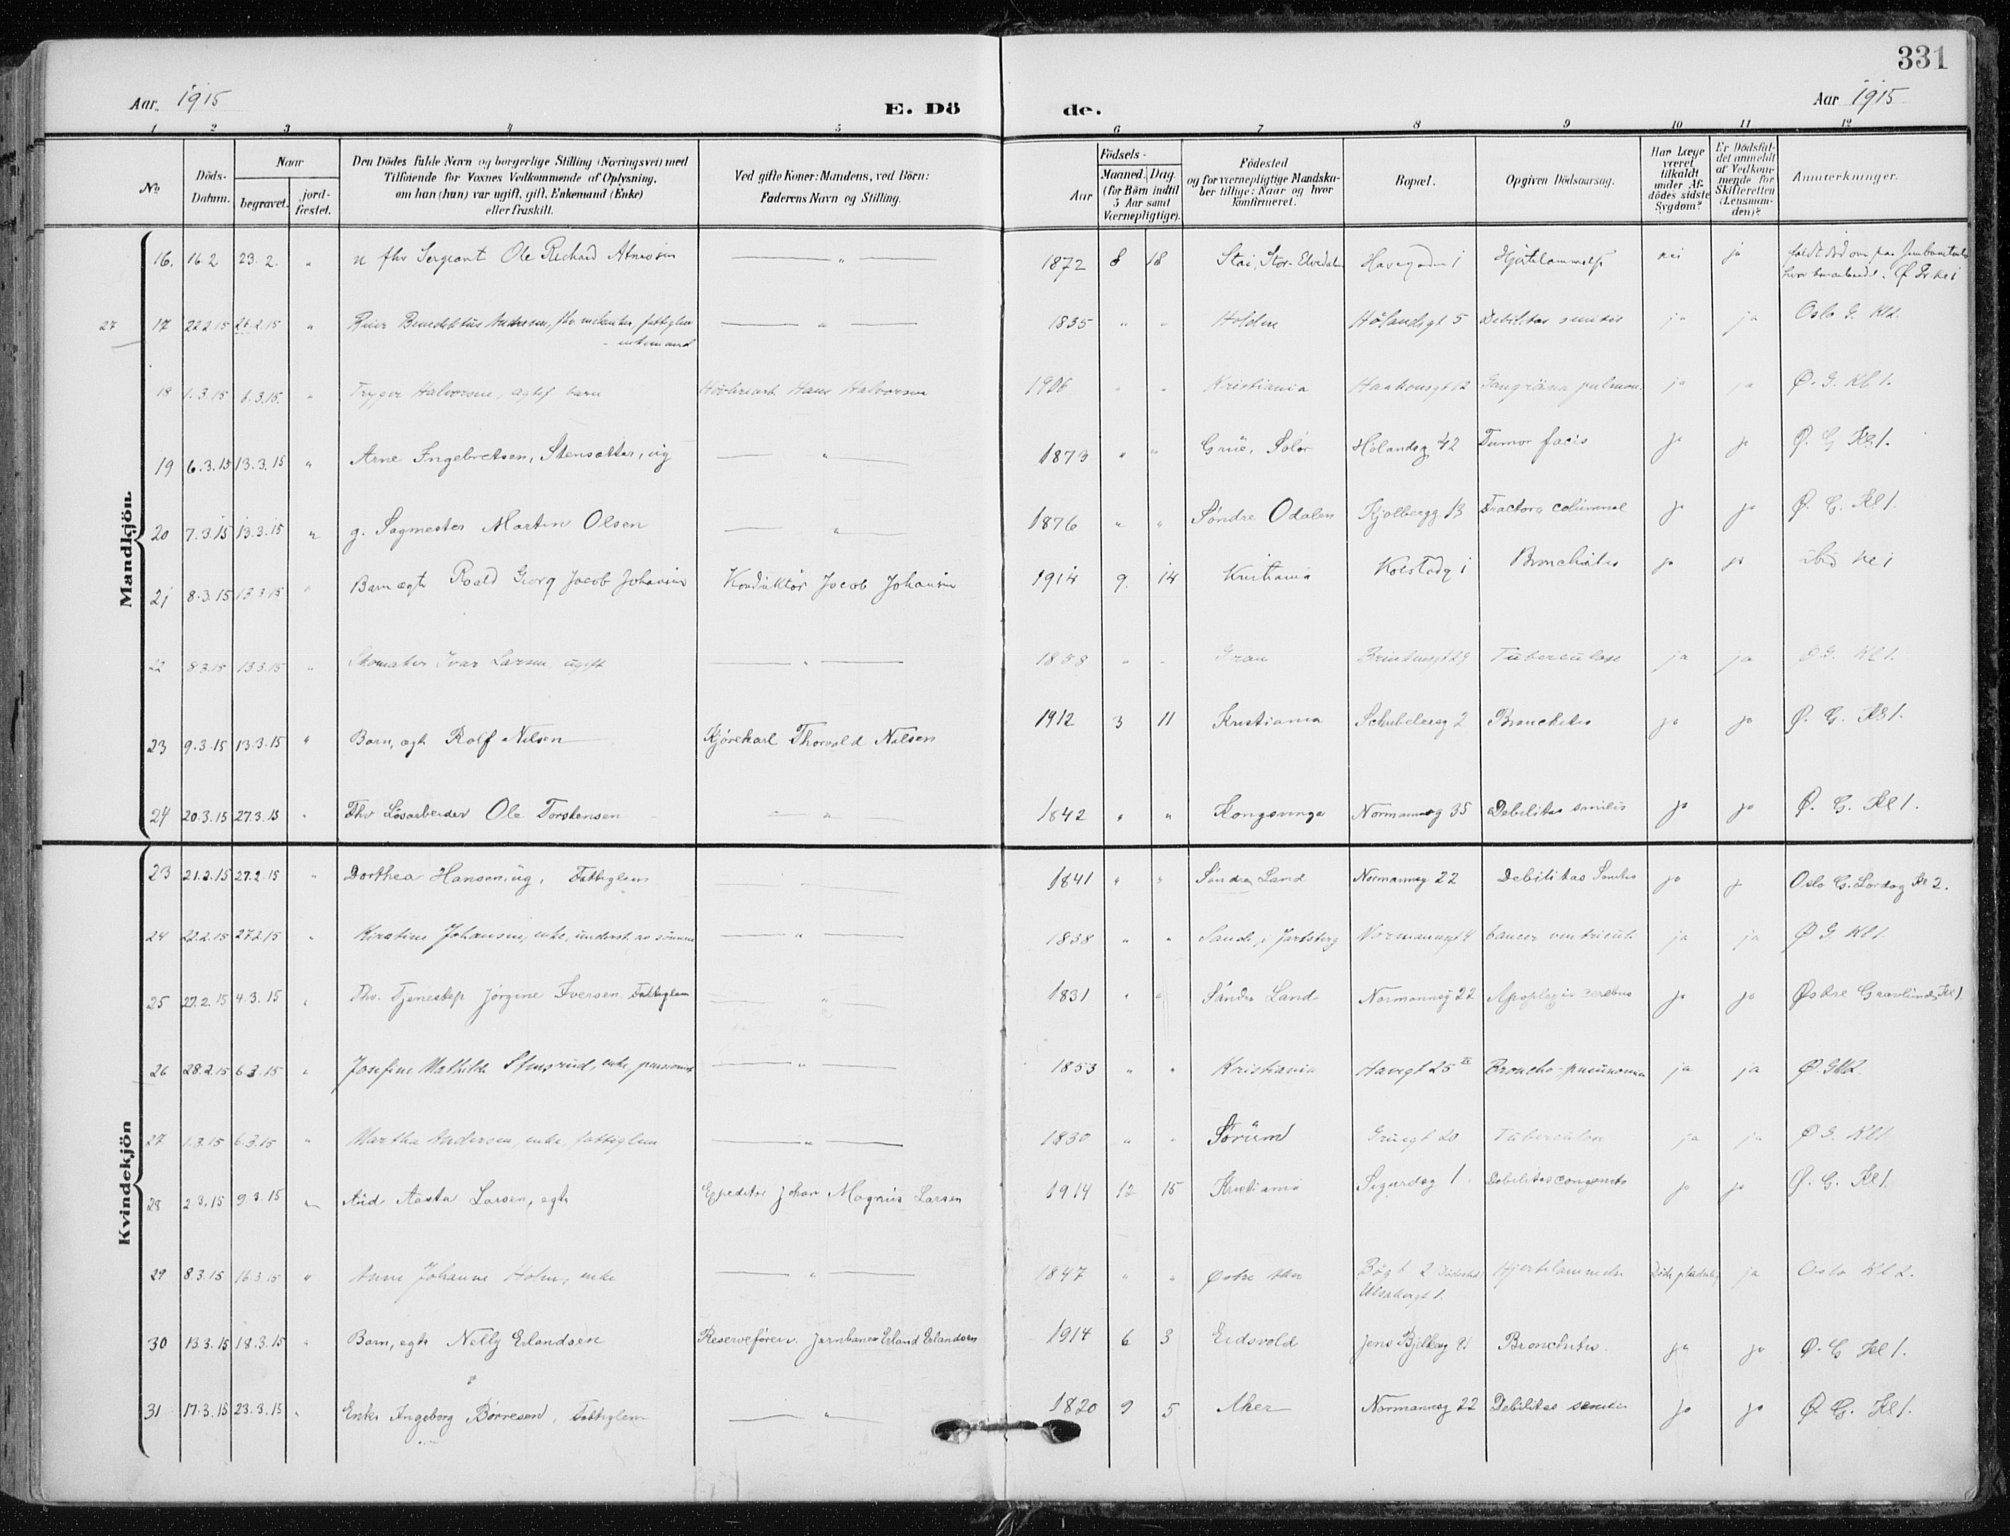 331
Aar. 1915
E. Dö
de.
Aar 1915
1 2 3 4 5 6 7 8 9 10 11 12
No
Döds-Datum.
Naar
begravet.
jord-fæstet.
Den Dödes fulde Navn og borgerlige Stilling (Næringsvei) med
Tilföiende for Voxnes Vedkommende af Oplysning,
om han (hun) var ugift, gift, Enkemand (Enke)
eller fraskilt.
Ved gifte Koner: Mandens, ved Börn:
Faderens Navn og Stilling.
Födsels-
Aar
Maaned. Dag
(for Børn indtil
5 Aar samt
Værnepligtige).
Födested
og for værnepligtige Mandska-
ber tillige: Naar og hvor
konfirmeret.
Bopæl.
Opgiven Dödsaarsag.
Har Læge
været
tilkaldt
under Af-
dödes sidste
Sygdom?
Er Dödsfal-
det anmeldt
af Vedkom-
mende for
Skifteretten
(Lensman-
den)?
Anmerkninger.
Mandkjön.
16. 16.2 23.2. " Sergeant Ole Richard " 1872 8 18 Stai, Stor-Elvedalen 1 nei ja
27 17 22.2.15 26.2.15 " Benediktus Andersen, " 1835 " " 5 Debilitas senilis ja ja Oslo G. Kl 2.
18 1.3.15 6.3.15. " Halvorsen, barn Hans Halvorsen 1906 " " Kristiania Haakonsgt 12 Gangræna pulmon. ja ja Ø. G. Kl 1.
19 6.3.15 13.3.15 " Arne Engebretsen, Stensætter, ug " 1873 " " Grue, Solør Hølandsg 42 Tumor facis ja ja Ø. G. Kl 1.
20 7.3.15 13.3.15 " g. Sagmester Martin Olsen " 1876 " " Søndre Odalen Kjølbergg 13 columnæ ja ja Ø. G. Kl 1.
21 8.3.15 13.3.15 " Barn ægt Roald Georg Jacob Johansen Konduktør Jacob Johansen 1914 9. 14 Kristiania 1 Bronchitis ja ja ibid Kl 1
22 8.3.15 13.3.15 " Skomaker Ivar Larsen ugift " 1858 " " Gran Tuberculose ja ja Ø G. Kl 1.
23 9.3.15 13.3.15 " Barn, ægt Rolf Nilsen Kjørekarl Thorvald Nilsen 1912 3 11 Kristiania Schubelersg 2 Bronchitis ja ja Ø. G. Kl 1.
24 20.3.15 27.3.15 " Fhv Løsarbeider Ole Torstensen " 1842 " " Kongsvinger Normannsg 35 Debilitas senilis ja ja Ø. G. Kl 1.
Kvindekjön
23 21.2.15 27.2.15 " Dorthea Hansen, ug, Fattiglem 1841 " " Søndre Land Normannsg 22 Debilitas Senilis ja ja Oslo G. Lørdag Kl 2.
24 22.2.15 27.2.15 " Kirstine Johansen, enke, underst. av sønnen " 1838 " " Sande, Jarlsberg Normannsgt 4 Cancer ventriculi ja ja Ø G. Kl 1.
25 27.2.15 4.3.15 " Fhv. Tjenestep Jørgine Iversen Fattiglem " 1831 " " Søndre Land Normannsg 22 Apoplexia cerebri ja ja Østre Gravlund Kl 1
26 28.2.15 6.3.15 " Josefine Mathilde Stensrud, enke, pensionist " 1853 " " Kristiania Havegt 25 II Broncho-pneumonia ja ja Ø. G Kl 2.
27 1.3.15 6.3.15 " Martha Andersen, enke, fattiglem " 1830 " " Sørum Tuberculose ja ja Ø G. Kl 1.
28 2.3.15 9.3.15 " Aasta Larsen, ægt Expeditør Johan Magnus Larsen 1914 12 15 Kristiania Sigurdsg 1 Debilitas congenita ja ja Ø. G. Kl 1.
29 8.3.15 16.3.15 " Anne Johanne Holm, enke " 1847 " " Østre Aker Bøgt 2 Hjertelammelse ja Oslo Kl 2.
30 13.3.15 18.3.15 " Barn, ægt Nelly Erlandsen Reservefører v. Jernbanen Erland Erlandsen 1914 6 3 Eidsvold Jens Bjelkesg Bronchitis. ja ja Ø. G Kl 1.
31 17.3.15 23.3.15 " Enke Ingeborg Børresen, Fattiglem " 1820 9 5 Aker Normannsg 22 Debilitas senilis ja ja Ø. G. Kl 1.